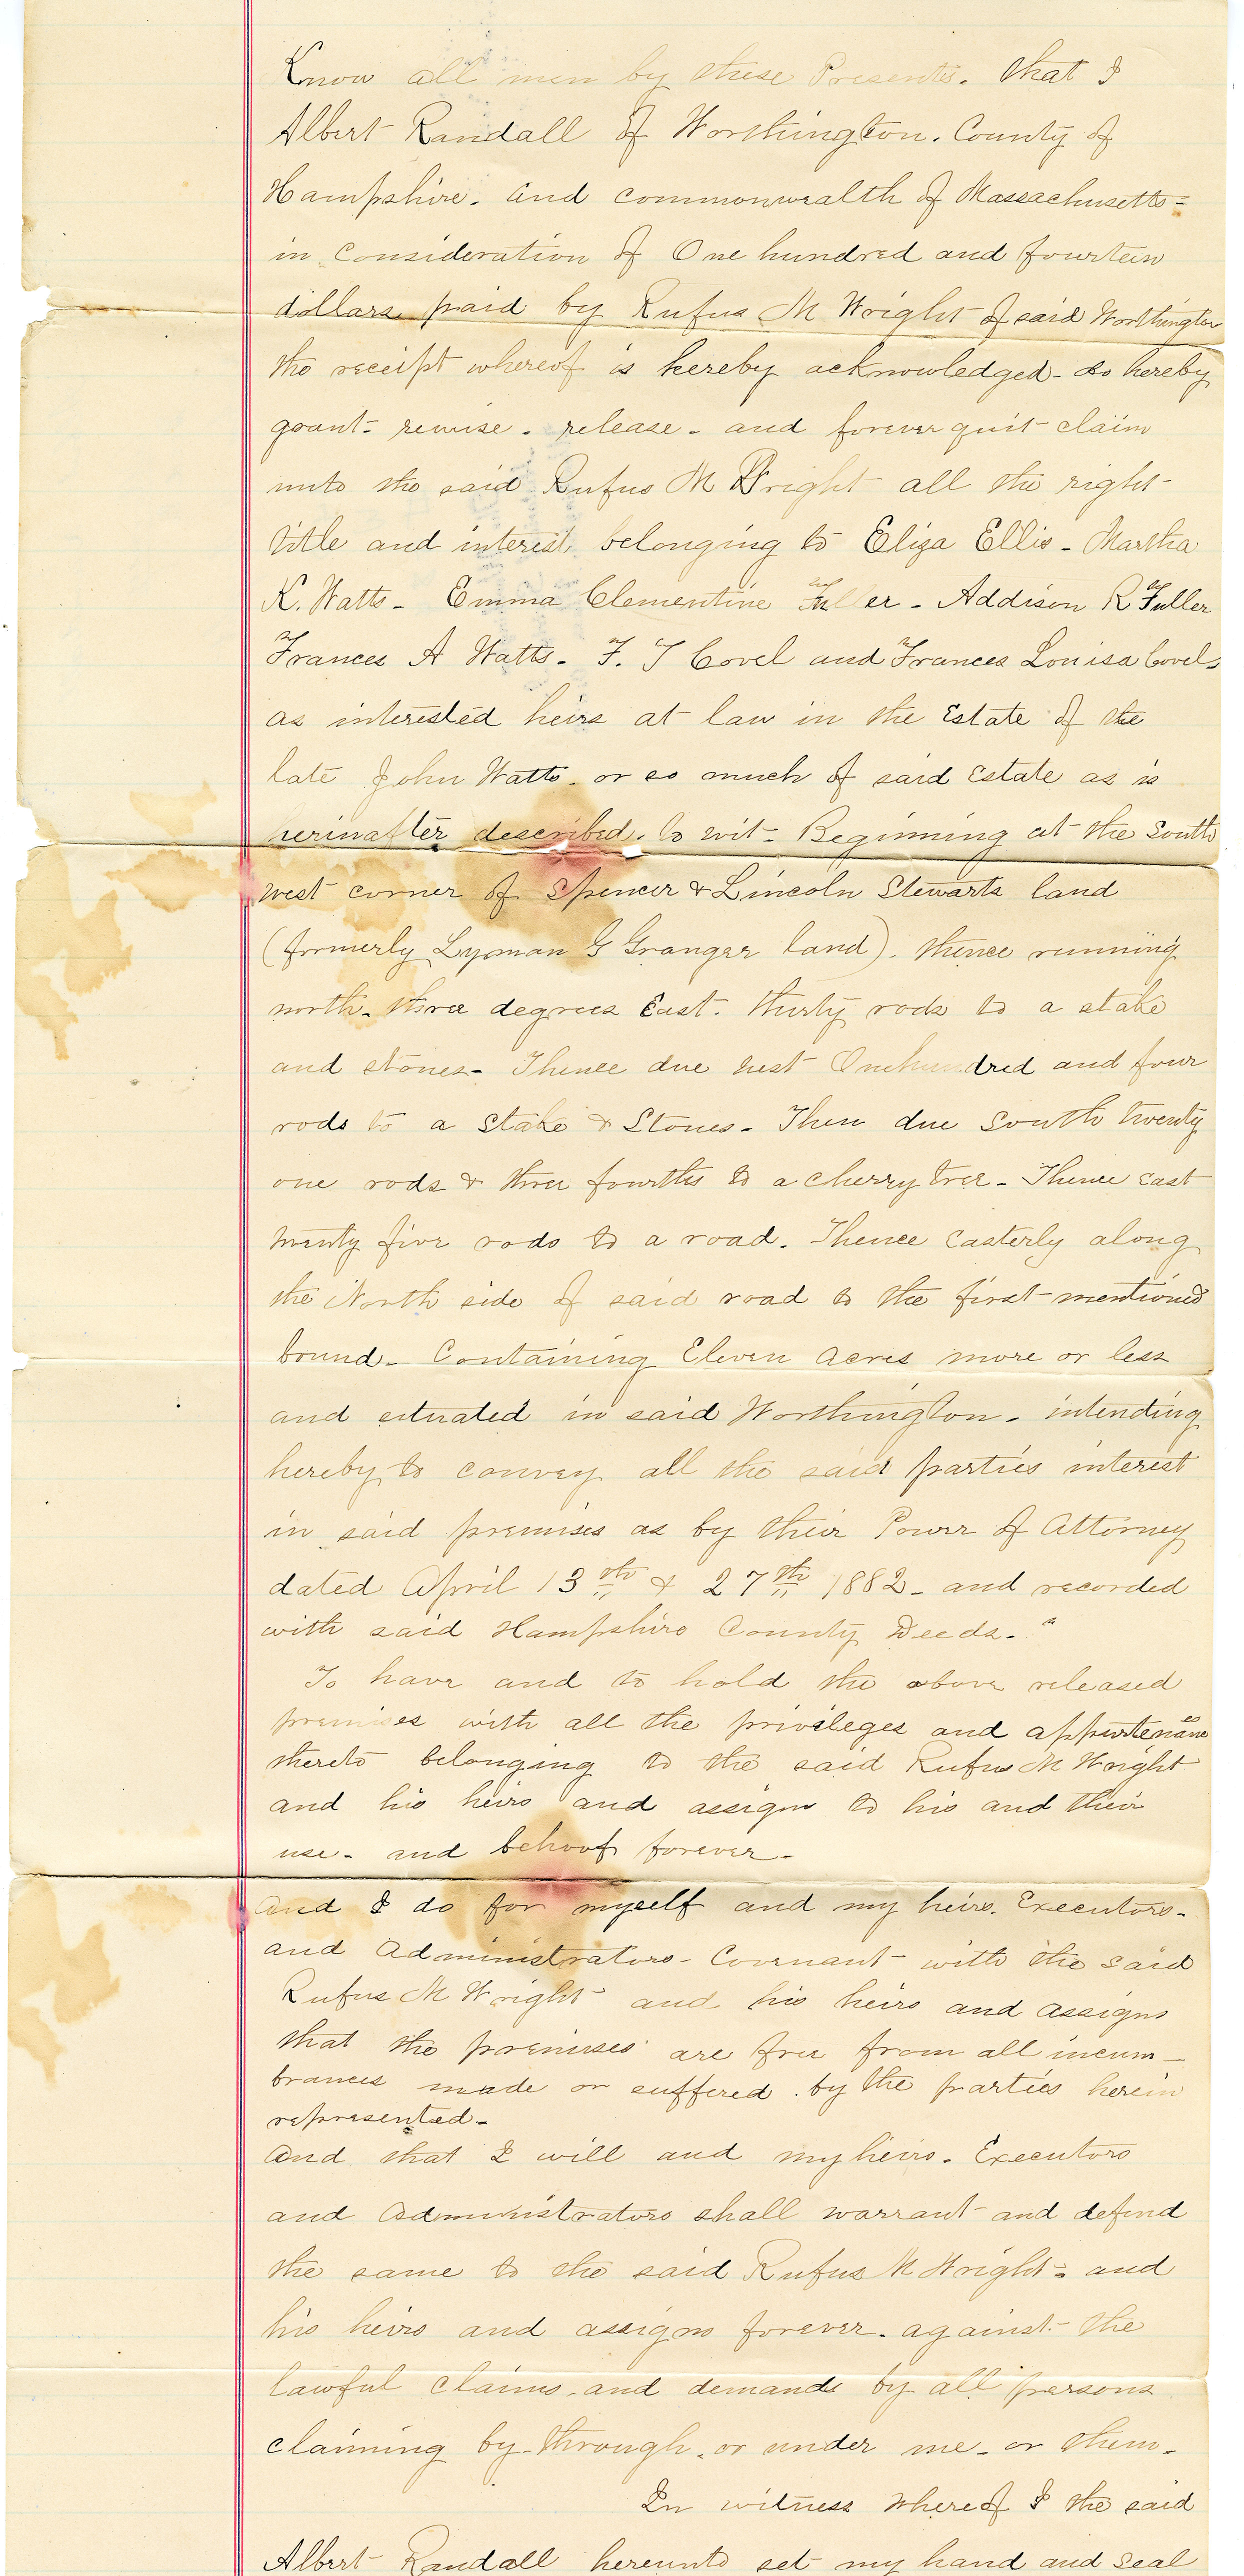 Know all men by these Presents. that I
Albert Randall of Worthington. County of
Hampshire. and commonwealth of Massachusetts-
in Consideration of One hundred and fourteen
dollars paid by Rufus M Wright of said Worthington
the receipt whereof is hereby acknowledged - do hereby
grant - remise - release - and forever quit claim
unto the said Rufus M Wright all the right
title and interest belonging to Eliza Ellis - Martha
K. Watts - Emma Clementine Fuller - Addison R Fuller
Frances A Watts - F. T Covel and Frances Louisa Covel
as interested heirs at law in the Estate of the
late John Watts. or so much of said Estate as is
herinafter described. to wit - Beginning at the South
west corner of Spencer & Lincoln Stewarts land
(formerly Lyman G Granger land). thence running
north - three degrees East. thirty rods to a stake
and stones - Thence due west One hundred and four
rods to a stake & Stones - Then due South twenty
one rods & three fourths to a cherry tree - Thence east
twenty five rods to a road. Thence easterly along
the North side of said road to the first mentioned
bound - Containing Eleven Acres more or less
and situated in said Worthington - intending
hereby to convey all the said parties interest
in said premises as by their Power of Attorney
dated April 13th & 27th 1882 - and recorded
with said Hampshire County Deeds - "
To have and to hold the above released
premises with all the privileges and appurtenances
thereto belonging to the said Rufus M Wright
and his heirs and assigns to his and their
use - and behoof forever -
And I do for myself and my heirs. Executors -
and Administrators - Covenant with the said
Rufus M Wright and his heirs and assigns
that the premises are free from all incum-
brances made or suffered by the parties herein
represented -
And that I will and my heirs. Executors
and Administrators shall warrant and defend
the same to the said Rufus M Wright - and
his heirs and assigns forever - against - the
lawful claims and demands by all persons
claiming by - through - or under me - or them -
In witness whereof I the said
Albert Randall hereunto set my hand and seal